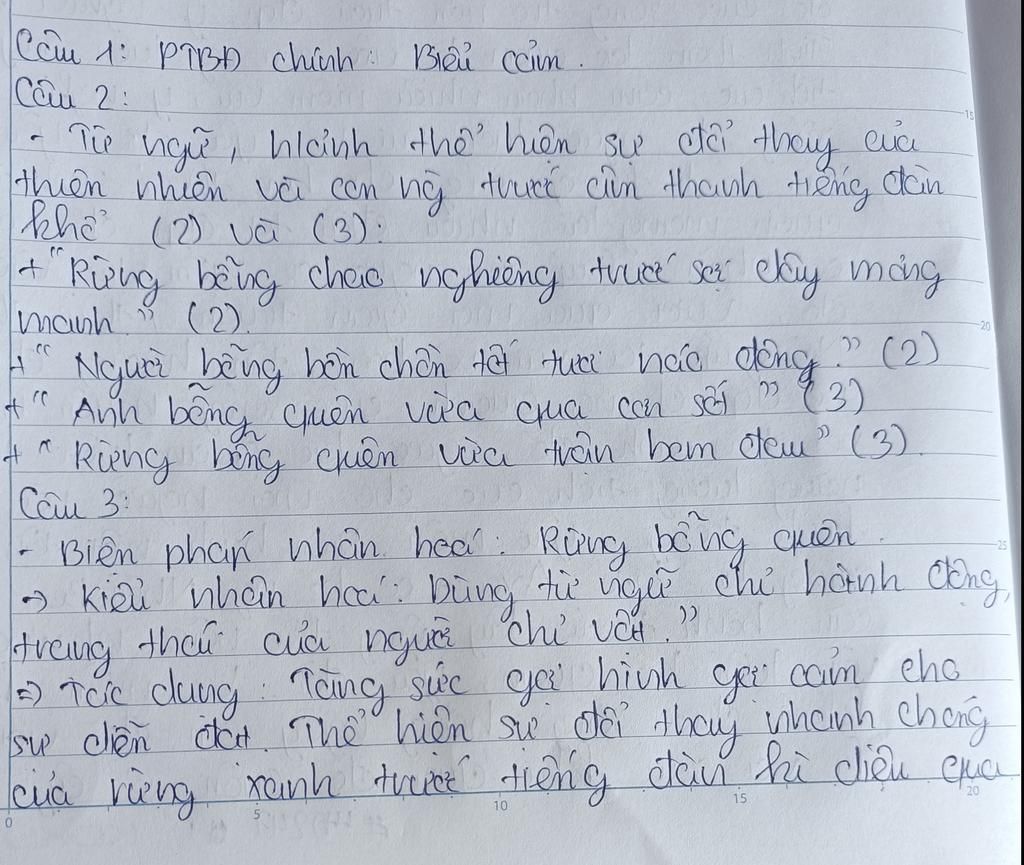 Câu 1: PTBĐ chính: Biểu cảm.
Câu 2:
- Từ ngữ, h/cảnh thể hiện sự đổi thay của
thiên nhiên và con ng trước âm thanh tiếng đàn
khổ (2) và (3):
+ "Rừng bỗng chao nghiêng trước sợi dây mỏng
manh." (2).
+ "Người bỗng bồn chồn tới tươi náo động." (2)
+ "Anh bỗng quên vừa qua cơn sốt" (3)
+ "Rừng bỗng quên vừa trận bom đêm" (3).
Câu 3:
- Biện pháp nhân hoá: Rừng bỗng quên.
→ Kiểu nhân hoá: Dùng từ ngữ chỉ hành động,
trạng thái của người chỉ vật."
⇒ Tác dụng: Tăng sức gợi hình gợi cảm cho
sự diễn đạt. Thể hiện sự đổi thay nhanh chóng
của rừng xanh trước tiếng đàn kì diệu qua
0 5 10 15 20
15
20
25